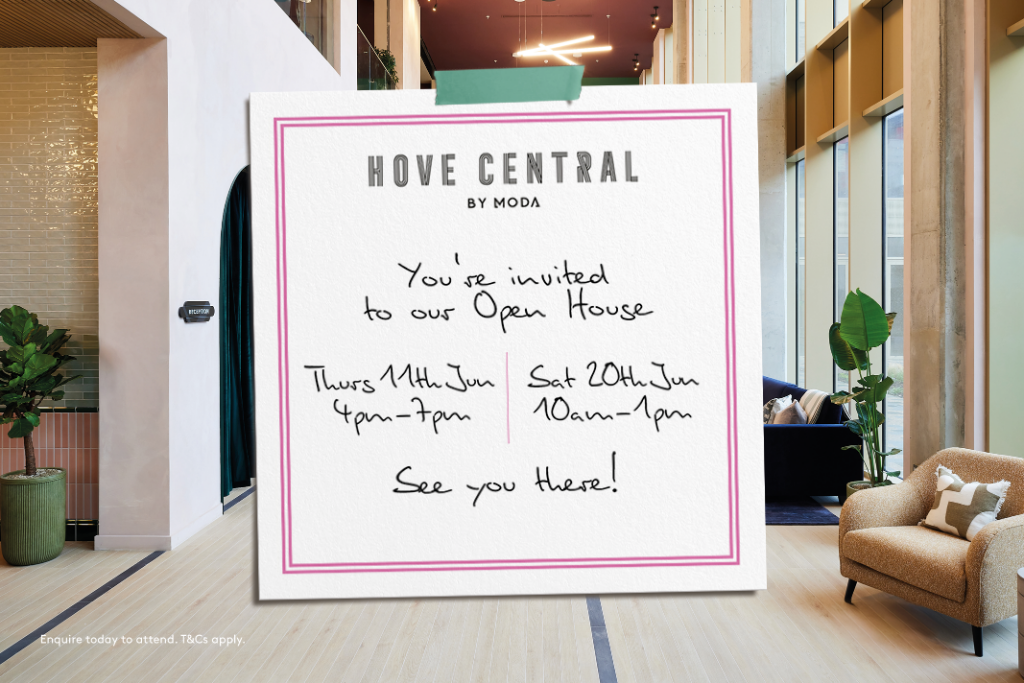 HOVE CENTRAL
BY MODA
You're invited
to our Open House
Thurs 11th Jun
4pm-7pm
Sat 20th Jun
10am-1pm
See you there!
RECEPTION
Enquire today to attend. T&Cs apply.